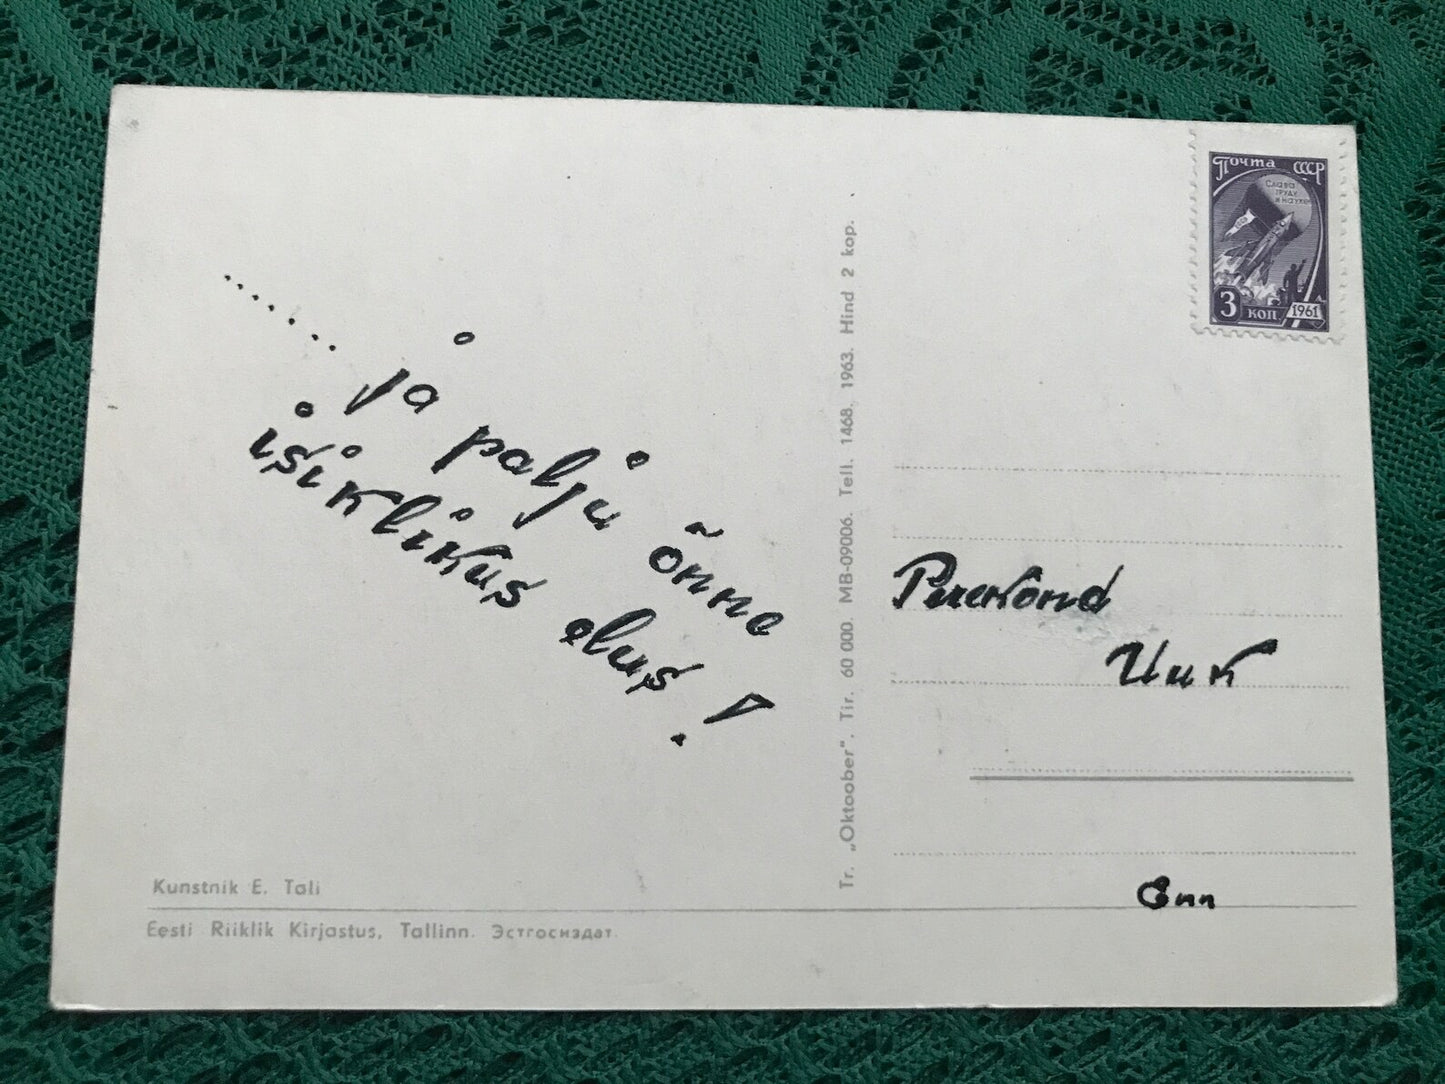 ....... ja palju õnne
isiklikus elus!
Kunstnik E. Tali
Eesti Riiklik Kirjastus, Tallinn. Эстгосиздат.
Tr. „Oktoober“. Tir. 60 000. MB-09006. Tell. 1468. 1963. Hind 2 kop.
Почта СССР
Слава
труду
и науке
3 коп 1961
Perekond
Uuk
Enn